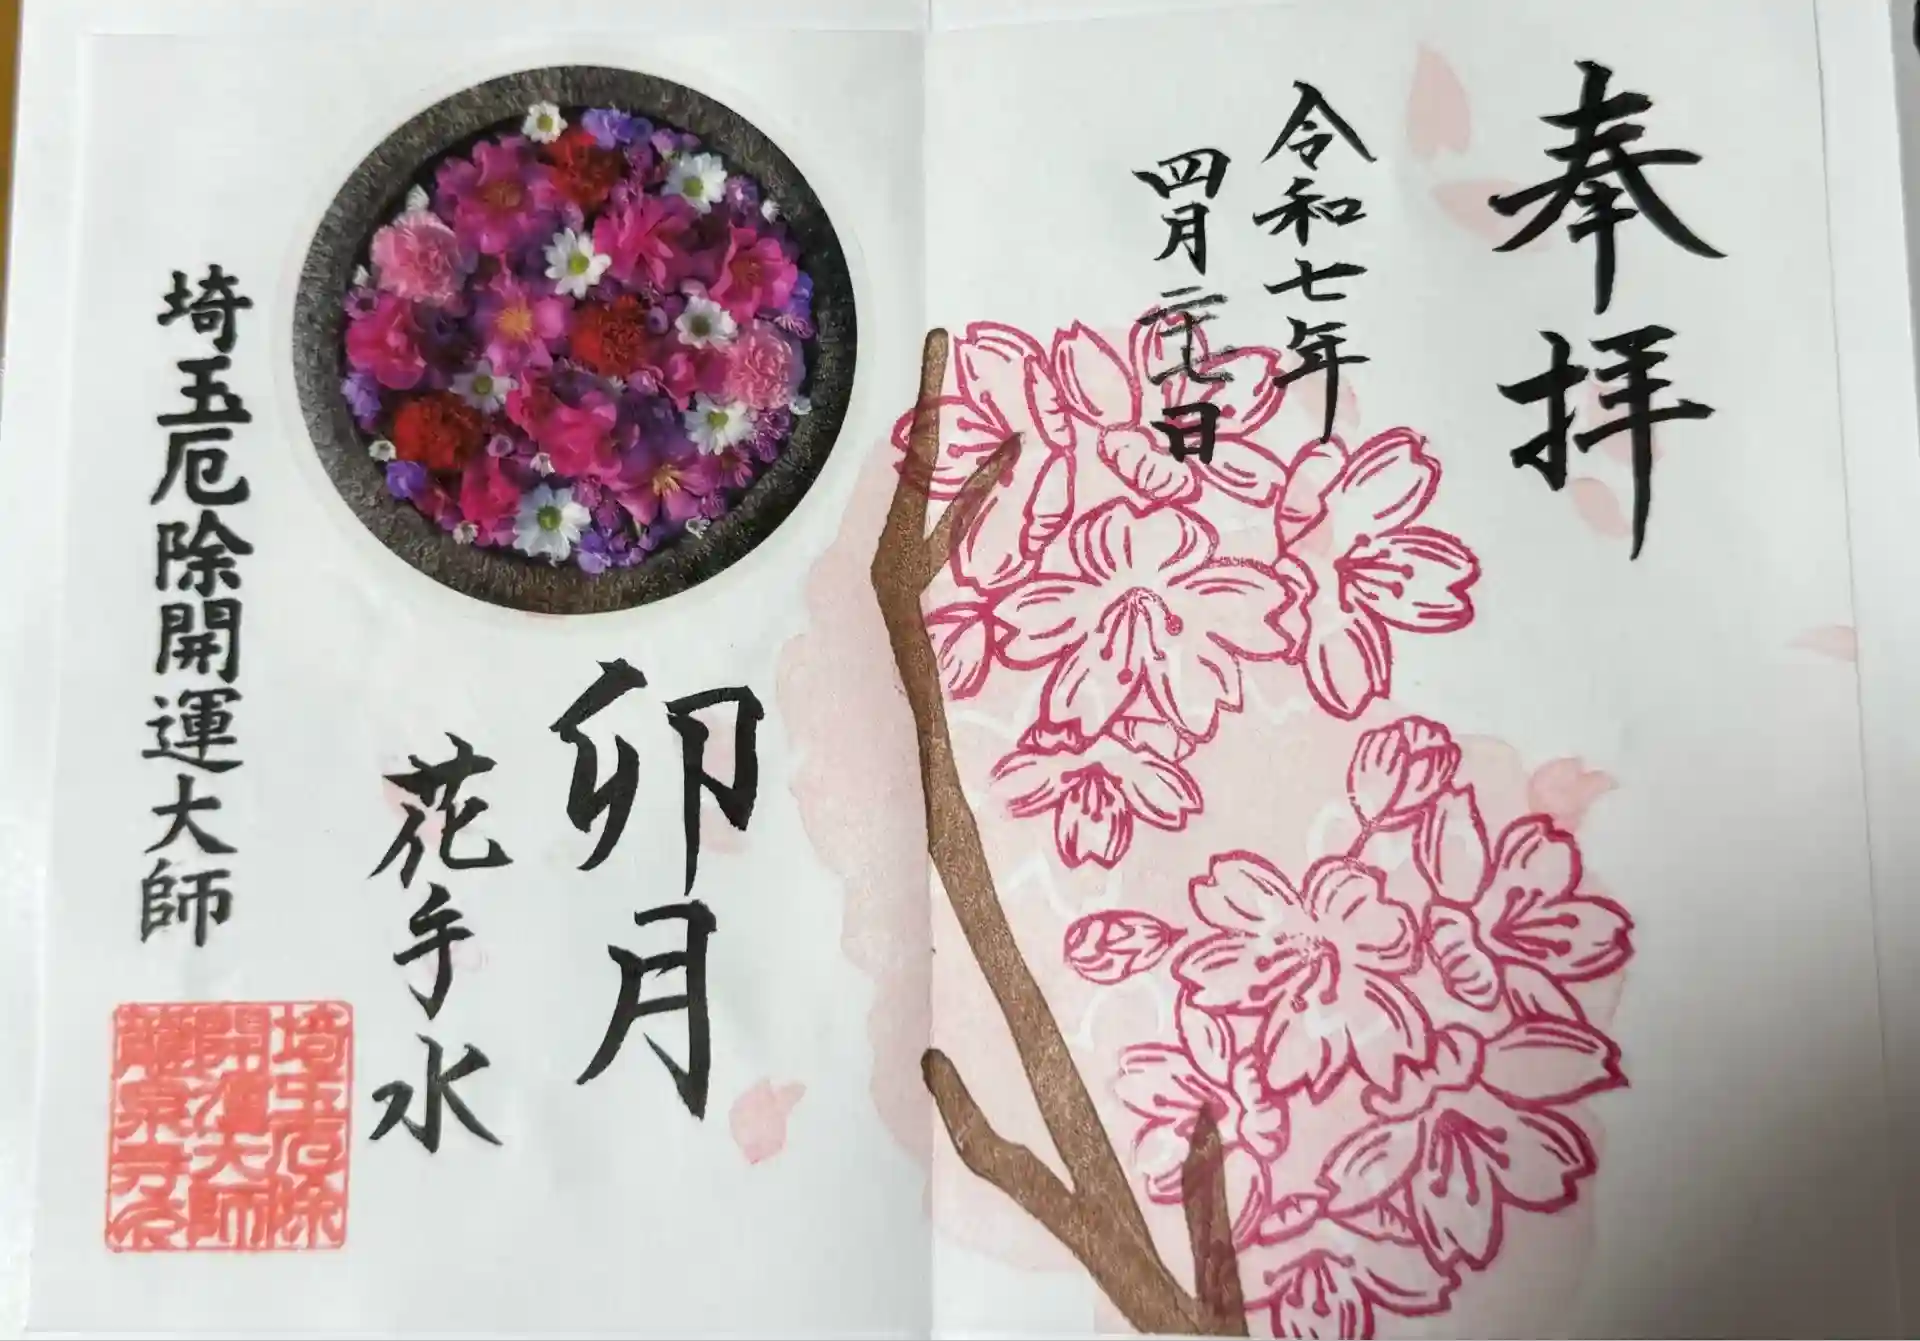 奉拝
令和七年
四月二十七日
卯月
花手水
埼玉厄除開運大師
埼玉厄除
開運大師
龍泉寺